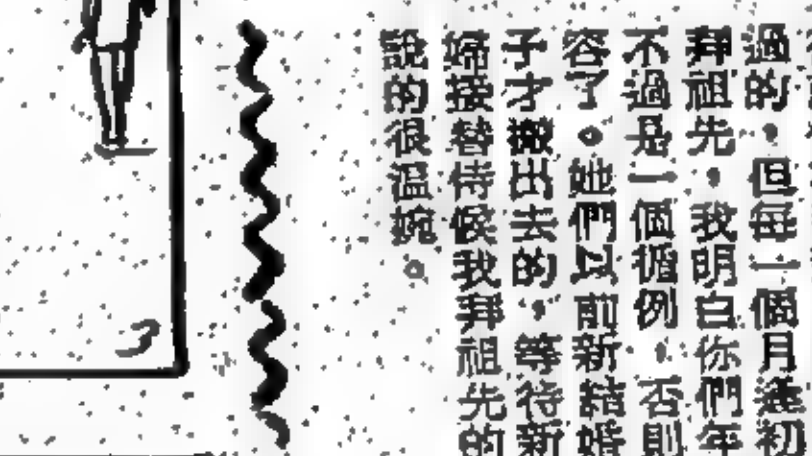 過的。但每一個月逢初
拜祖先,我明白你們年
不過是一個循例,否則
容了。她們以前新結婚
子才搬出去的,等待新
婦接替侍候我拜祖先的
說的很溫婉。